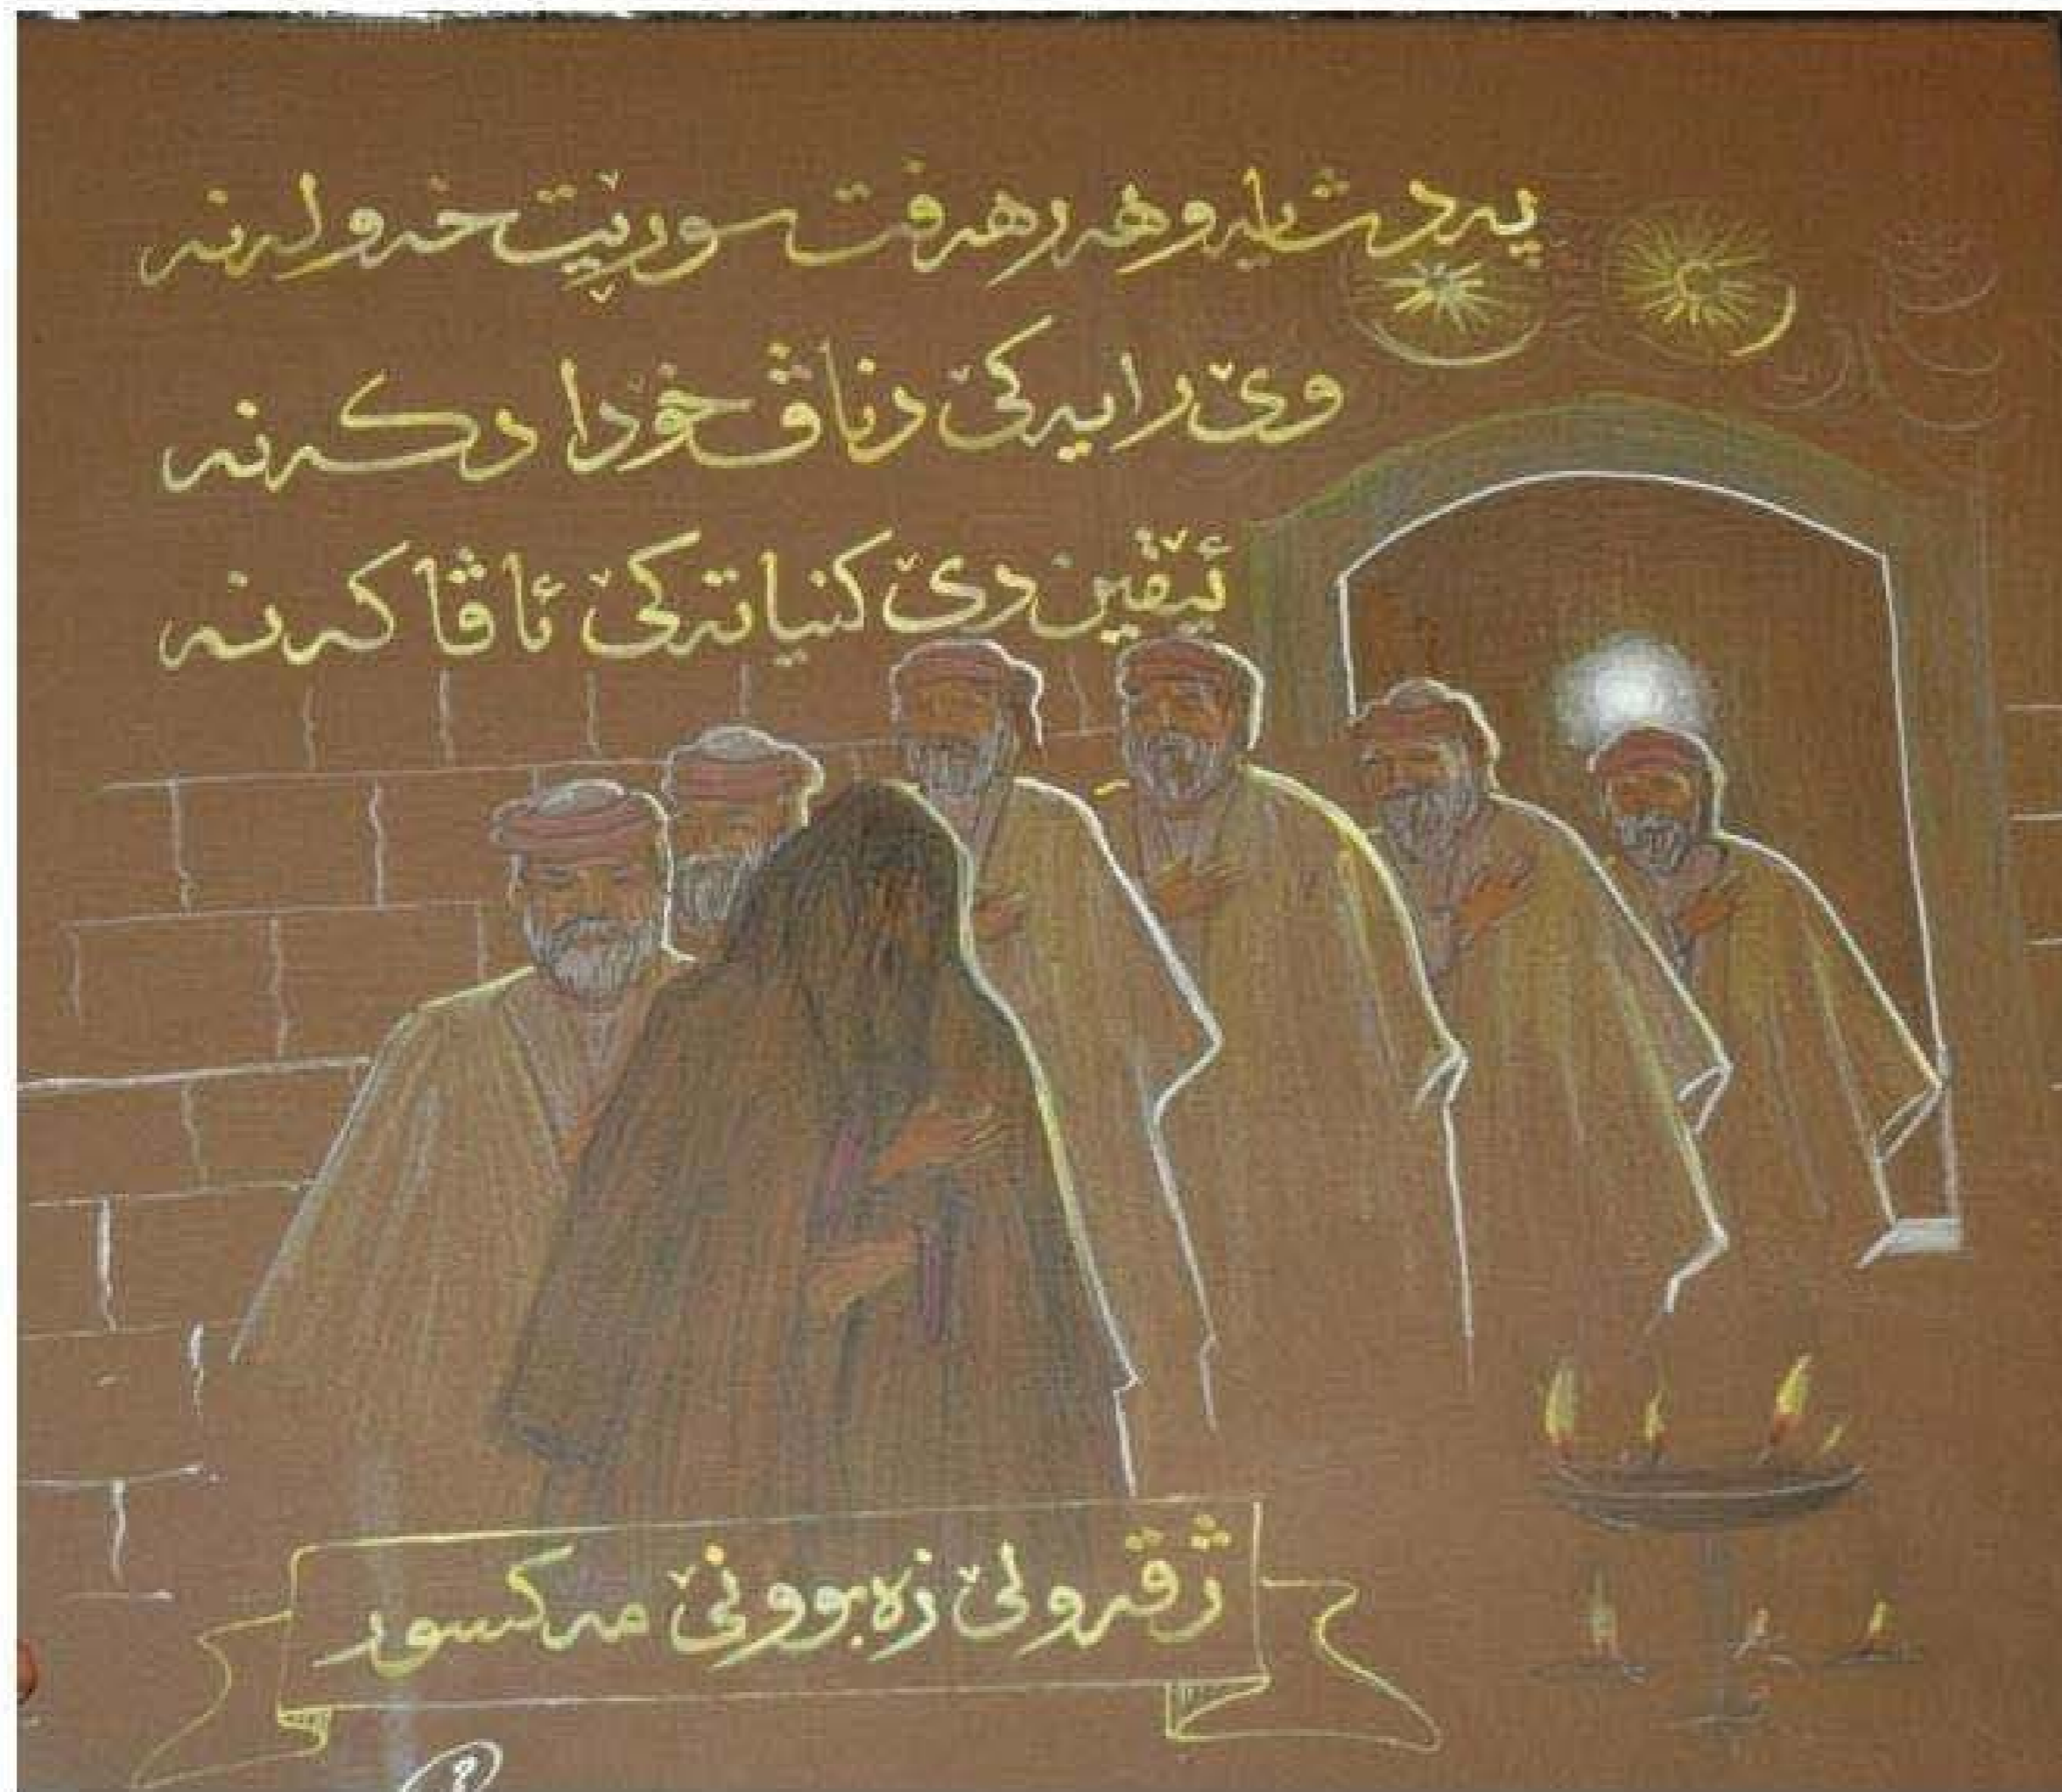 پەدشایە وهەر هەفت سورێت خەولەنە
وێ رایەکێ دناڤ خۆدا دکەنە
ئێڤین دێ کنیاتەکێ ئاڤا کەنە
ژ قەولێ زەبوونێ مەکسور